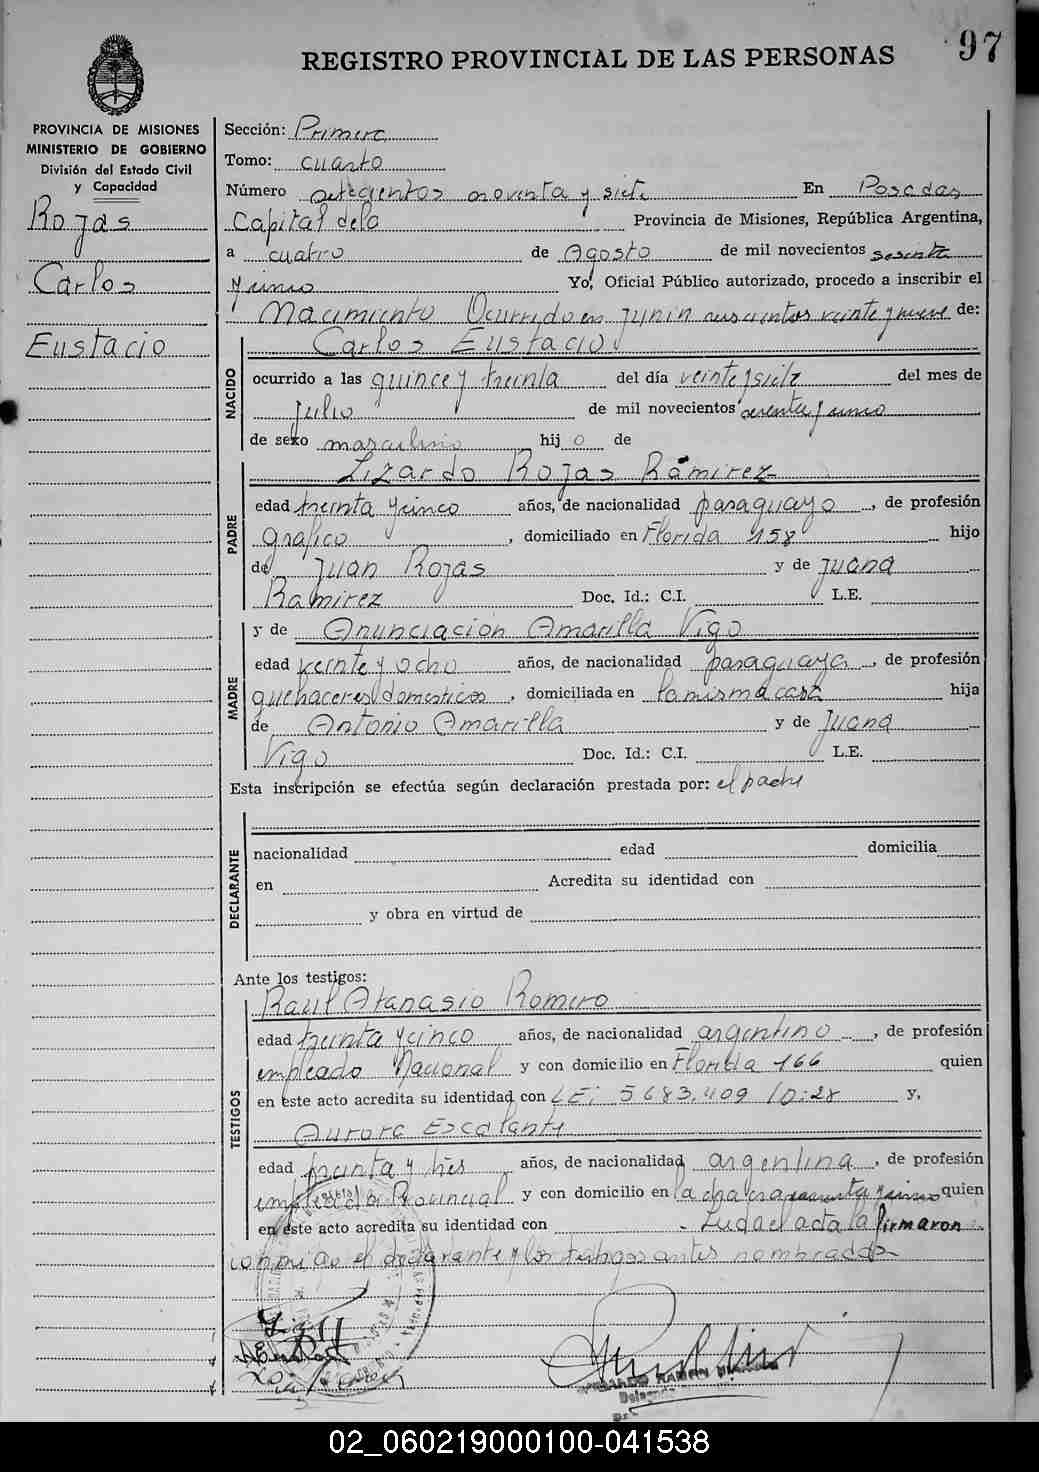 97
REGISTRO PROVINCIAL DE LAS PERSONAS
PROVINCIA DE MISIONES
MINISTERIO DE GOBIERNO
División del Estado Civil
y Capacidad
Rojas
Carlos
Eustacio
Sección: Primera
Tomo: cuarto
Número setecientos noventa y siete En Posadas
Capital dela Provincia de Misiones, República Argentina,
a cuatro de Agosto de mil novecientos sesenta
y cinco Yo, Oficial Público autorizado, procedo a inscribir el
Nacimiento Ocurrido en Junín veinte y nueve de:
NACIDO
Carlos Eustacio
ocurrido a las quince y treinta del día veinte y siete del mes de
Julio de mil novecientos sesenta y cinco
de sexo masculino hij o de
PADRE
Lizardo Rojas Ramirez
edad treinta y cinco años, de nacionalidad paraguayo, de profesión
grafico, domiciliado en Florida 158 hijo
de Juan Rojas y de Juana
Ramirez Doc. Id.: C.I. L.E.
MADRE
y de Anunciacion Amarilla Vigo
edad veinte y ocho años, de nacionalidad paraguaya, de profesión
quehaceres domesticos, domiciliada en la misma casa hija
de Antonio Amarilla y de Juana
Vigo Doc. Id.: C.I. L.E.
Esta inscripción se efectúa según declaración prestada por: el padre
DECLARANTE
nacionalidad edad domicilia
en Acredita su identidad con
y obra en virtud de
Ante los testigos:
TESTIGOS
Raul Atanasio Romero
edad treinta y cinco años, de nacionalidad argentino, de profesión
empleado Nacional y con domicilio en Florida 166 quien
en este acto acredita su identidad con LE: 5683.409 y,
Aurora Escalante
edad treinta y tres años, de nacionalidad argentina, de profesión
empleada Provincial y con domicilio en la chacra quien
en este acto acredita su identidad con Leida el acta la firmaron
conmigo el declarante y los testigos antes nombrados
RAMON
Delegado
02_060219000100-041538